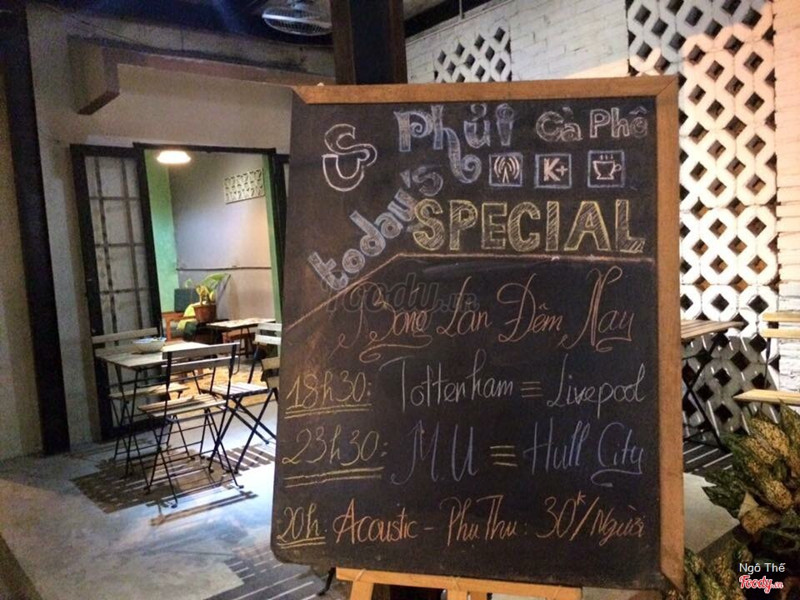 Phủi Cà Phê
K+
today's
SPECIAL
foody.vn
Bóng Lăn Đêm Nay
18h30: Tottenham = Livepool
23h30: M.U = Hull City
20h: Acoustic - Phụ Thu: 30k/Người
Ngô Thế
Foody.vn